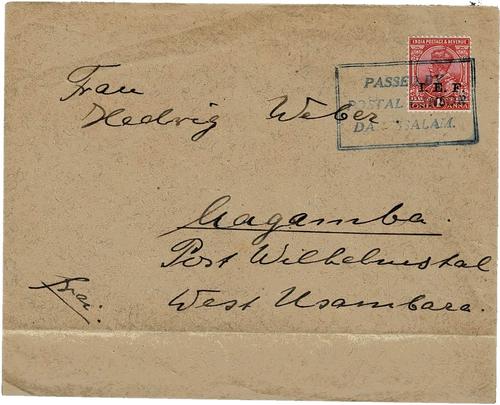 INDIA POSTAGE & REVENUE
I. E. F.
ONE ANNA
PASSED BY
POSTAL
DA SSALAM.
Frau
Hedwig Weber
Magamba.
Post Wilhelmstal
West Usambara.